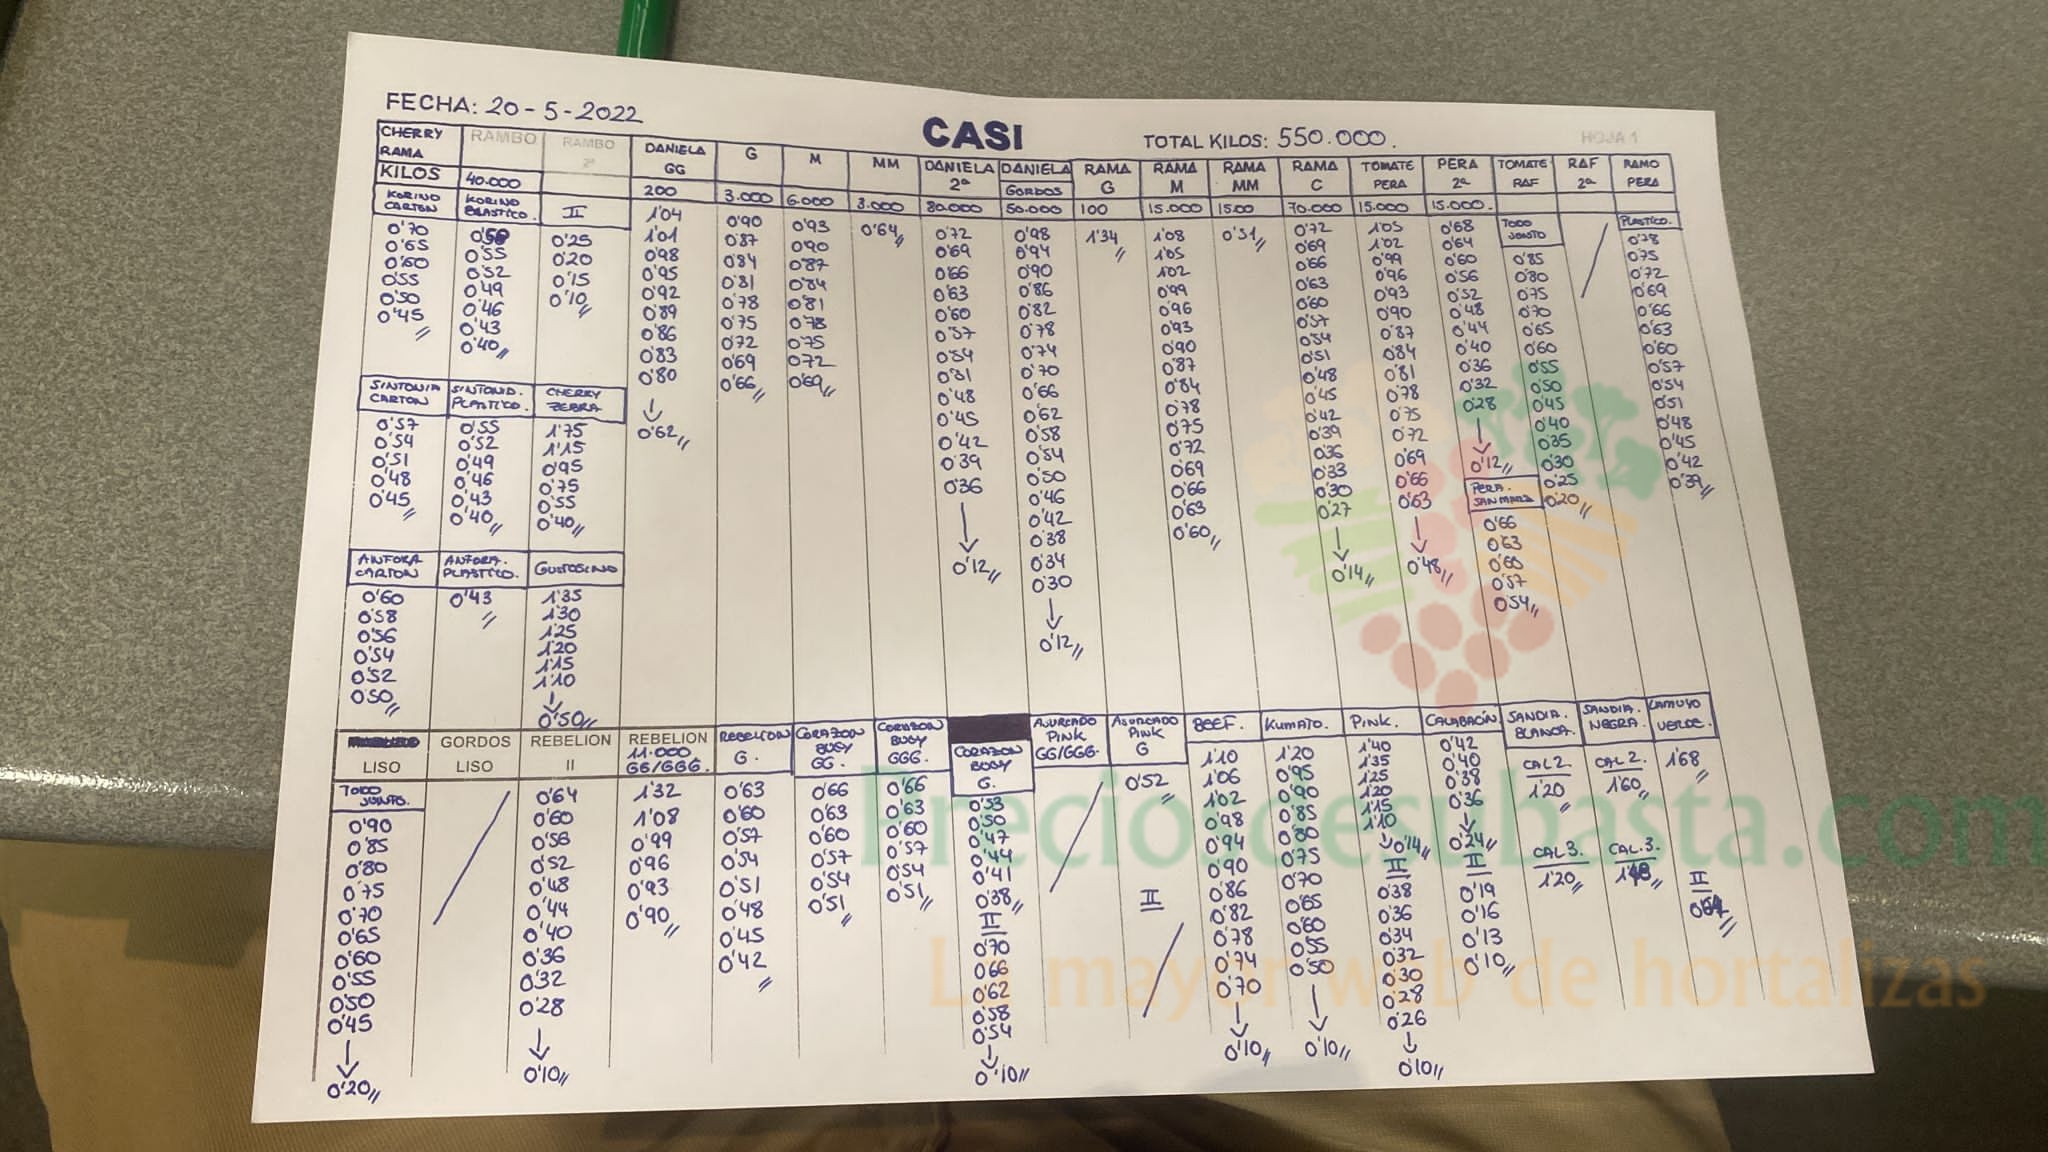 FECHA: 20-5-2022
CASI
TOTAL KILOS: 550.000.
HOJA 1
CHERRY RAMA
RAMBO
RAMBO 2ª
DANIELA GG
G
M
MM
DANIELA 2ª
DANIELA GORDOS
RAMA G
RAMA M
RAMA MM
RAMA C
TOMATE PERA
PERA 2ª
TOMATE RAF
RAF 2ª
RAMO PERA
KILOS
40.000
200
3.000
6.000
3.000
80.000
50.000
100
15.000
1500
70.000
15.000
15.000.
KORINO CARTON
0'70
0'65
0'60
0'55
0'50
0'45
KORINO PLASTICO.
0'55
0'52
0'49
0'46
0'43
0'40
II
0'25
0'20
0'15
0'10
1'04
1'01
0'98
0'95
0'92
0'89
0'86
0'83
0'80
↓
0'62
0'90
0'87
0'84
0'81
0'78
0'75
0'72
0'69
0'66
0'93
0'90
0'87
0'84
0'81
0'78
0'75
0'72
0'69
0'64
0'72
0'69
0'66
0'63
0'60
0'57
0'54
0'51
0'48
0'45
0'42
0'39
0'36
↓
0'12
0'98
0'94
0'90
0'86
0'82
0'78
0'74
0'70
0'66
0'62
0'58
0'54
0'50
0'46
0'42
0'38
0'34
0'30
↓
0'12
1'34
1'08
1'05
1'02
0'99
0'96
0'93
0'90
0'87
0'84
0'78
0'75
0'72
0'69
0'66
0'63
0'60
0'51
0'72
0'69
0'66
0'63
0'60
0'57
0'54
0'51
0'48
0'45
0'42
0'39
0'36
0'33
0'30
0'27
↓
0'14
1'05
1'02
0'99
0'96
0'93
0'90
0'87
0'84
0'81
0'78
0'75
0'72
0'69
0'66
0'63
↓
0'48
0'68
0'64
0'60
0'56
0'52
0'48
0'44
0'40
0'36
0'32
0'28
↓
0'12
PERA.
0'66
0'63
0'60
0'57
0'54
TODO JUNTO
0'85
0'80
0'75
0'70
0'65
0'60
0'55
0'50
0'45
0'40
0'35
0'30
0'25
0'20
PLASTICO.
0'78
0'75
0'72
0'69
0'66
0'63
0'60
0'57
0'54
0'51
0'48
0'45
0'42
0'39
SINTONIA CARTON
0'57
0'54
0'51
0'48
0'45
SINTONIA PLASTICO.
0'55
0'52
0'49
0'46
0'43
0'40
CHERRY ZEBRA
1'75
1'15
0'95
0'75
0'55
0'40
ANFORA CARTON
0'60
0'58
0'56
0'54
0'52
0'50
ANFORA. PLASTICO.
0'43
GUSTOSINO
1'35
1'30
1'25
1'20
1'15
1'10
↓
0'50
LISO
TODO JUNTO.
0'90
0'85
0'80
0'75
0'70
0'65
0'60
0'55
0'50
0'45
↓
0'20
GORDOS LISO
REBELION II
0'64
0'60
0'56
0'52
0'48
0'44
0'40
0'36
0'32
0'28
↓
0'10
REBELION
11.000
GG/GGG.
1'32
1'08
0'99
0'96
0'93
0'90
REBELION G.
0'63
0'60
0'57
0'54
0'51
0'48
0'45
0'42
CORAZON BUEY GG.
0'66
0'63
0'60
0'57
0'54
0'51
CORAZON BUEY GGG.
0'66
0'63
0'60
0'57
0'54
0'51
CORAZON BUEY G.
0'53
0'50
0'47
0'44
0'41
0'38
II
0'70
0'66
0'62
0'58
0'54
↓
0'10
ASURCADO PINK GG/GGG.
ASURCADO PINK G
0'52
II
BEEF.
1'10
1'06
1'02
0'98
0'94
0'90
0'86
0'82
0'78
0'74
0'70
↓
0'10
KUMATO.
1'20
0'95
0'90
0'85
0'80
0'75
0'70
0'65
0'60
0'55
0'50
↓
0'10
PINK.
1'40
1'35
1'25
1'20
1'15
1'10
↓ 0'14
II
0'38
0'36
0'34
0'32
0'30
0'28
0'26
↓
0'10
CALABACIN.
0'42
0'40
0'38
0'36
↓
0'24
II
0'19
0'16
0'13
0'10
SANDIA. BLANCA.
CAL 2.
1'20
CAL 3.
1'20
SANDIA. NEGRA.
CAL 2.
1'60
CAL.3.
LAMUYO VERDE.
1'68
II
Preciosdesubasta.com
La mayor web de hortalizas